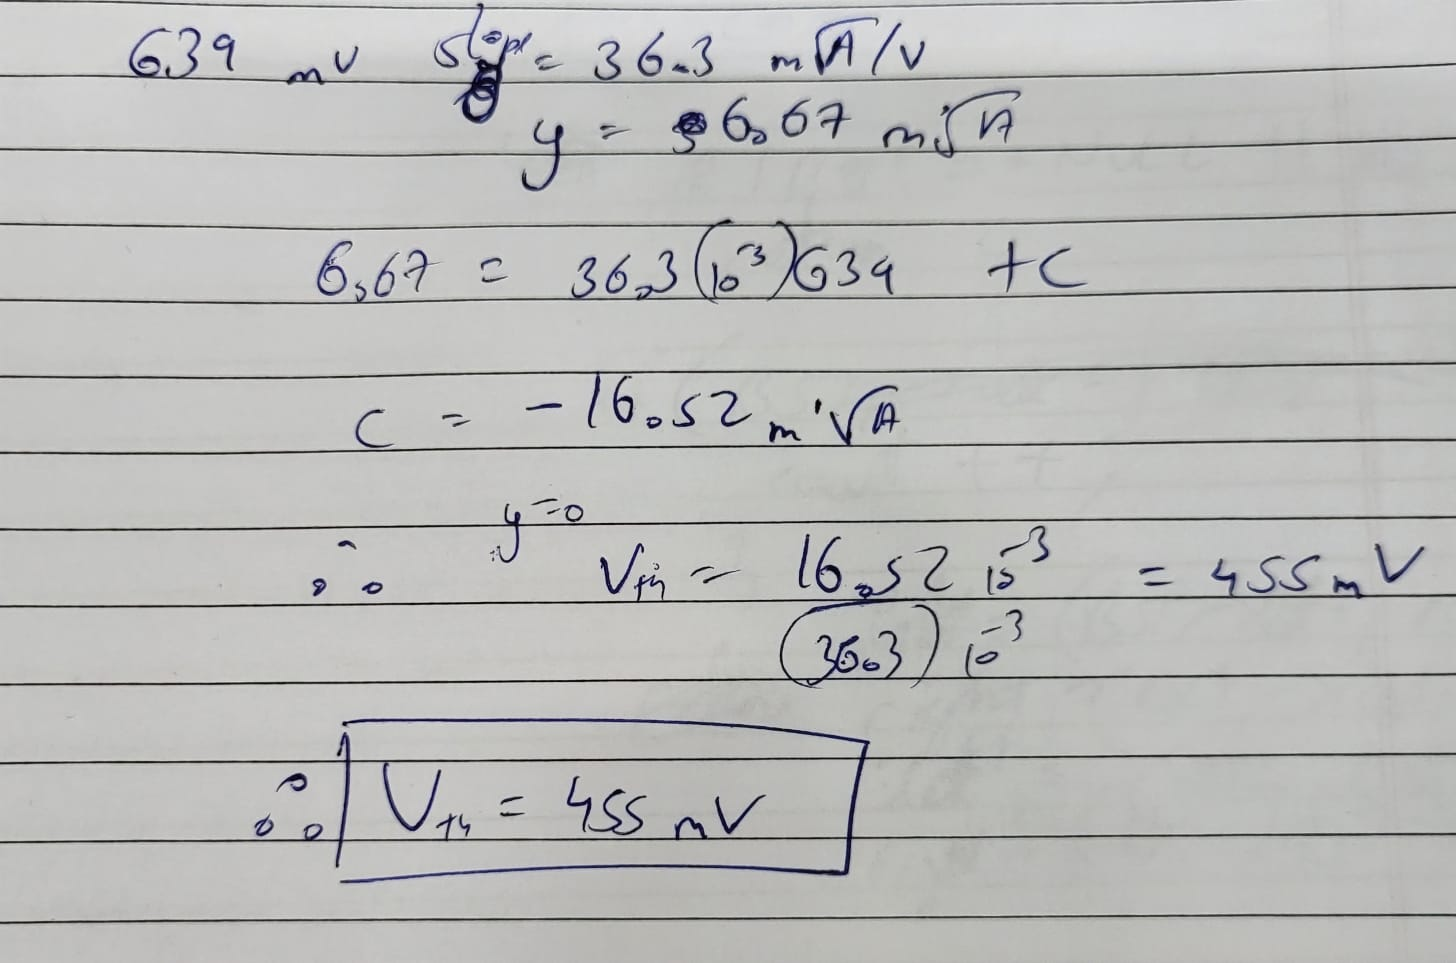 639 mV slope = 36.3 m√A/V
y = 6.67 m√A
6.67 = 36.3(10⁻³)639 + C
C = -16.52 m√A
∴ y=0 Vth = 16.52 10⁻³ / (36.3) 10⁻³ = 455 mV
∴ Vth = 455 mV